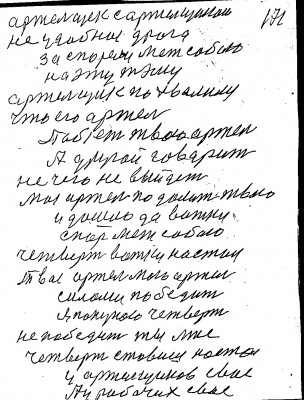 артельщик с артельщиком 171
не удобная дрога
заспорили меж собою
на эту тэму
артельщик похвалили
что его артел
Победт твою артел
А другой говарит
не чего не выйдет
моя артел подолит твою
и дошло да вотки
спор меж собою
четверт вотки настои
твоя артел мою артел
силами победит
я покупаю четверт
не победит ты мне
четверт ставиш настои
у артельщиков свае
А у рабочих свае